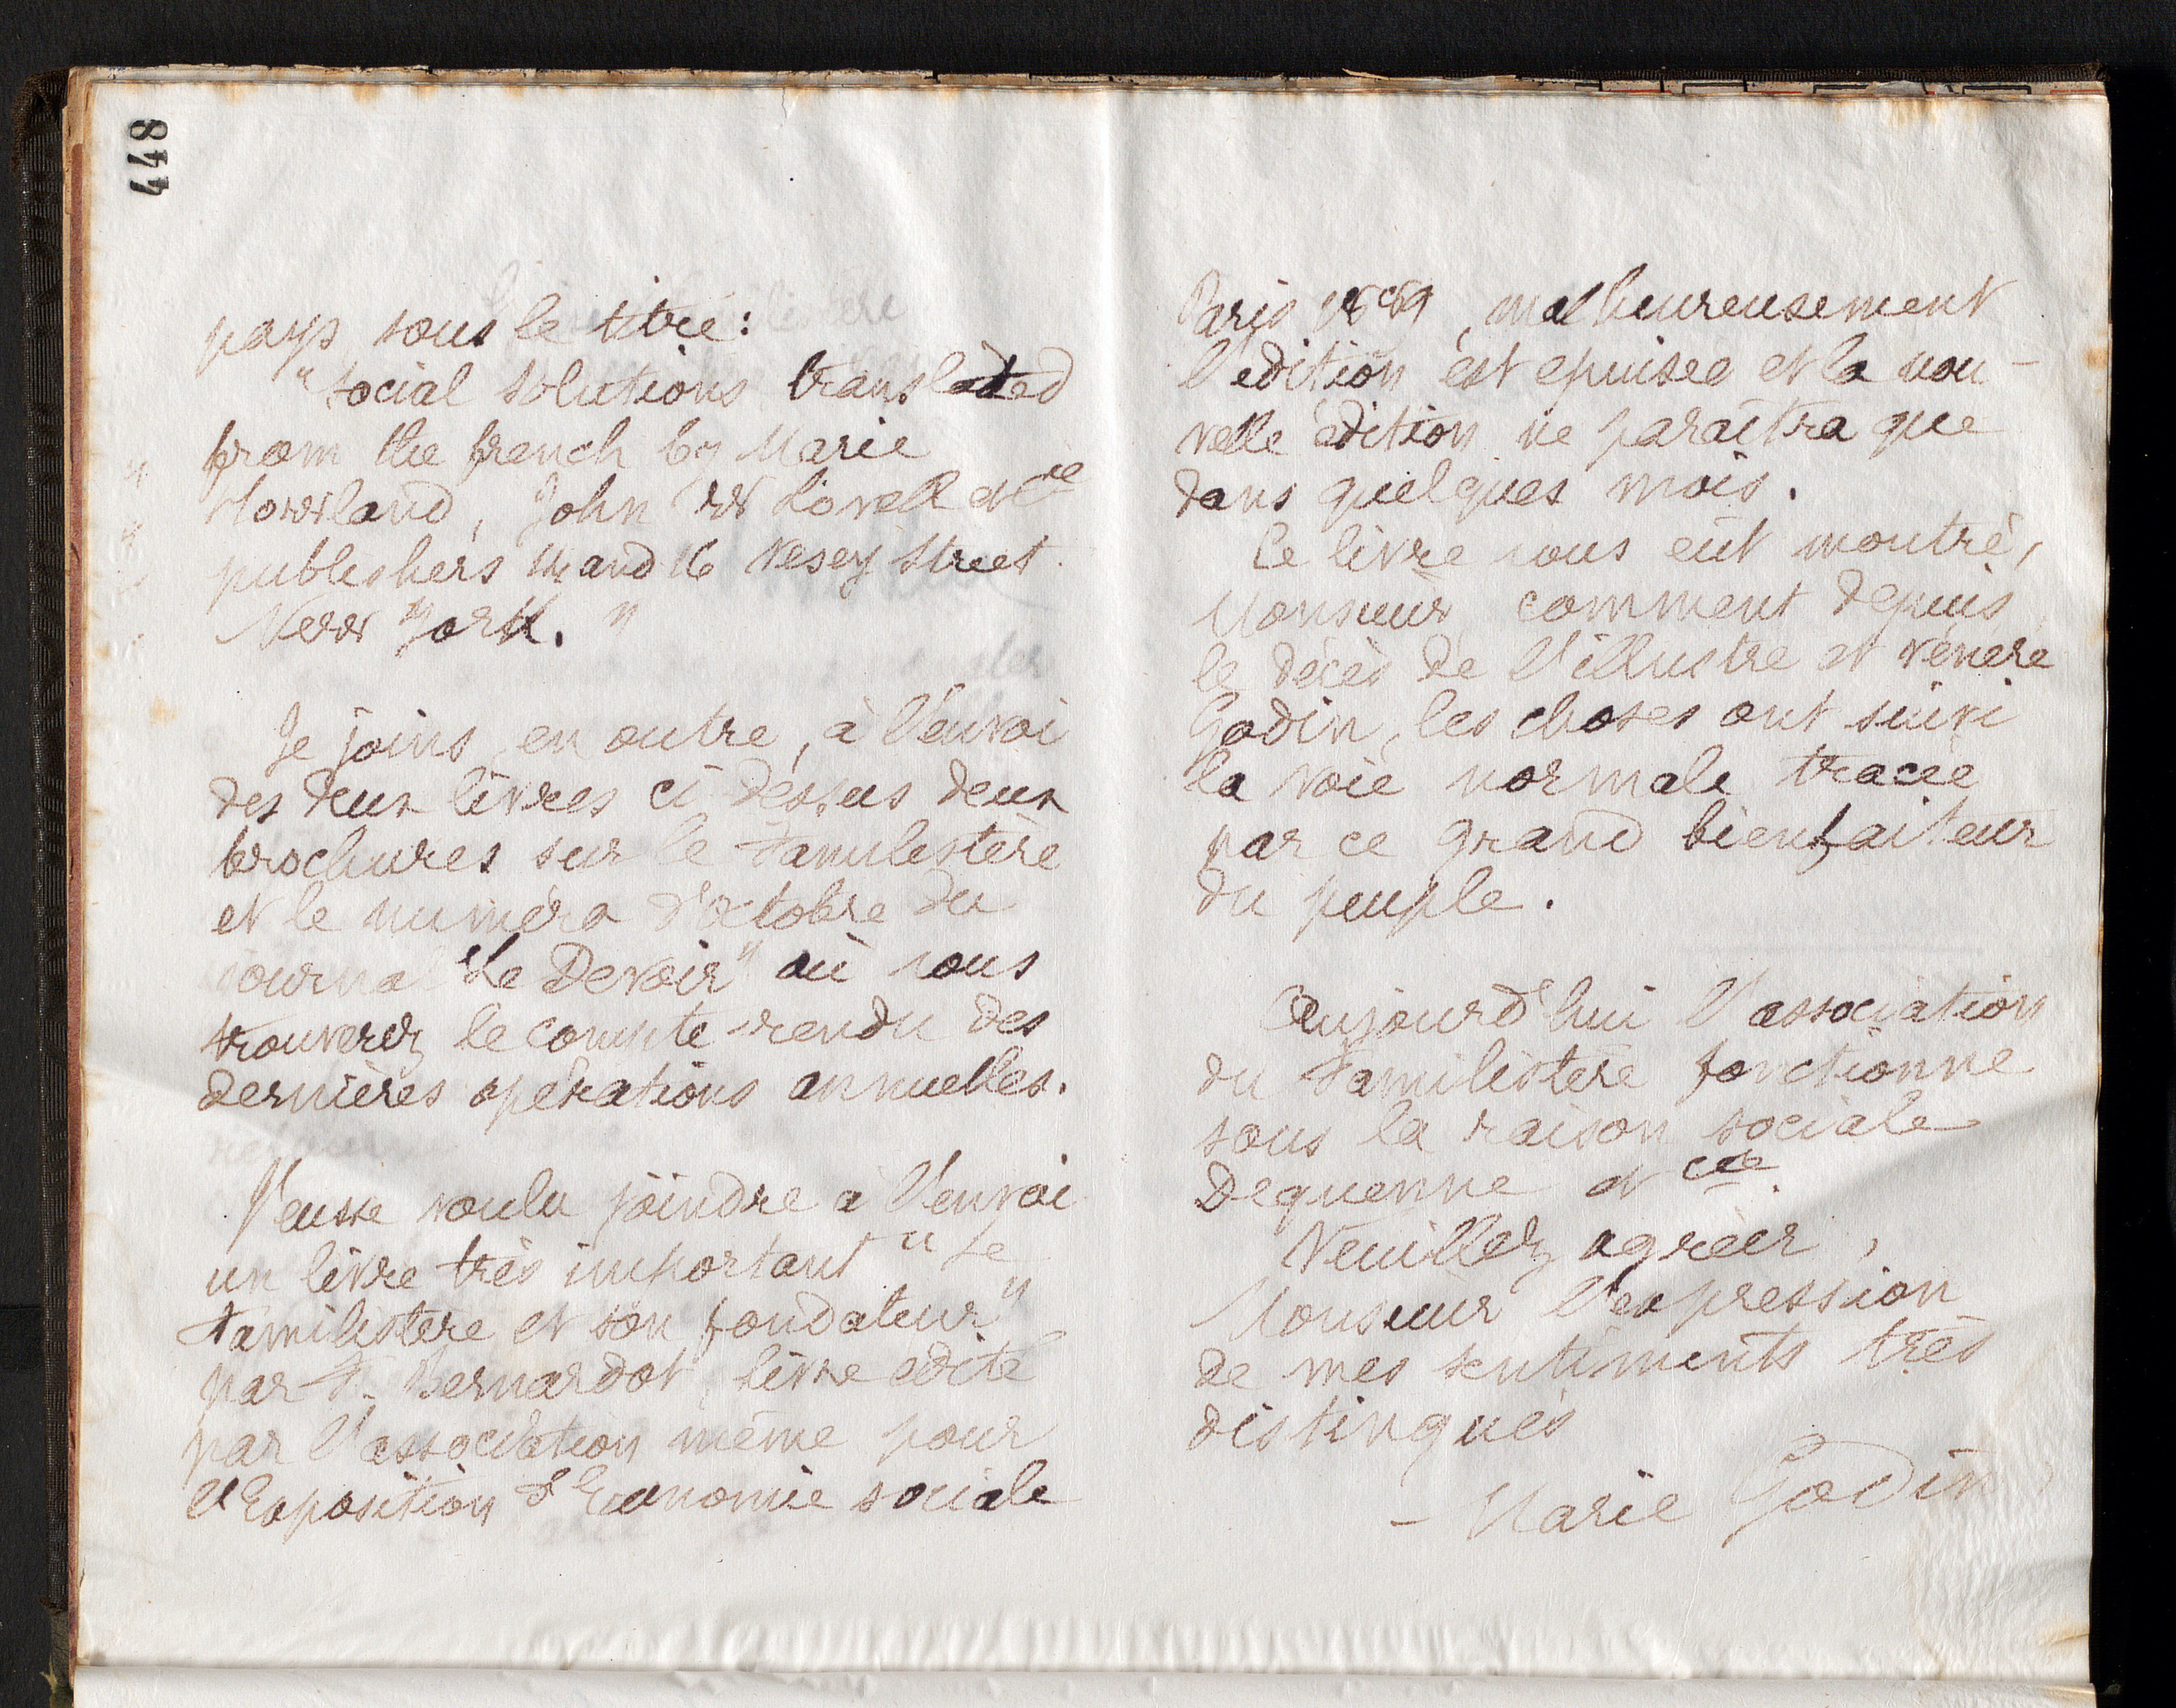 448
pays sous le titre :
"Social solutions translated
from the french by Marie
Howland, John W Lovell et Cie
publishers 14 and 16 Vesey Street.
New York. "
Je joins, en outre, à l'envoi
des deux livres ci-dessus deux
brochures sur le Familistère
et le numéro d'octobre du
journal "Le Devoir" où vous
trouverez le compte-rendu des
dernières opérations annuelles.
J'eusse voulu joindre à l'envoi
un livre très important "Le
Familistère et son fondateur"
par F. Bernardot, livre édité
par l'association même pour
l'Exposition d'Economie sociale
Paris 1889, malheureusement
l'édition est épuisée et la nou-
velle édition ne paraîtra que
dans quelques mois.
Ce livre vous eût montré,
Monsieur, comment depuis
le décès de l'illustre et vénéré
Godin, les choses ont suivi
la voie normale tracée
par ce grand bienfaiteur
du peuple.
Aujourd'hui l'association
du Familistère fonctionne
sous la raison sociale
Dequenne et Cie.
Veuillez agréer,
Monsieur l'expression
de mes sentiments très
distingués
- Marie Godin